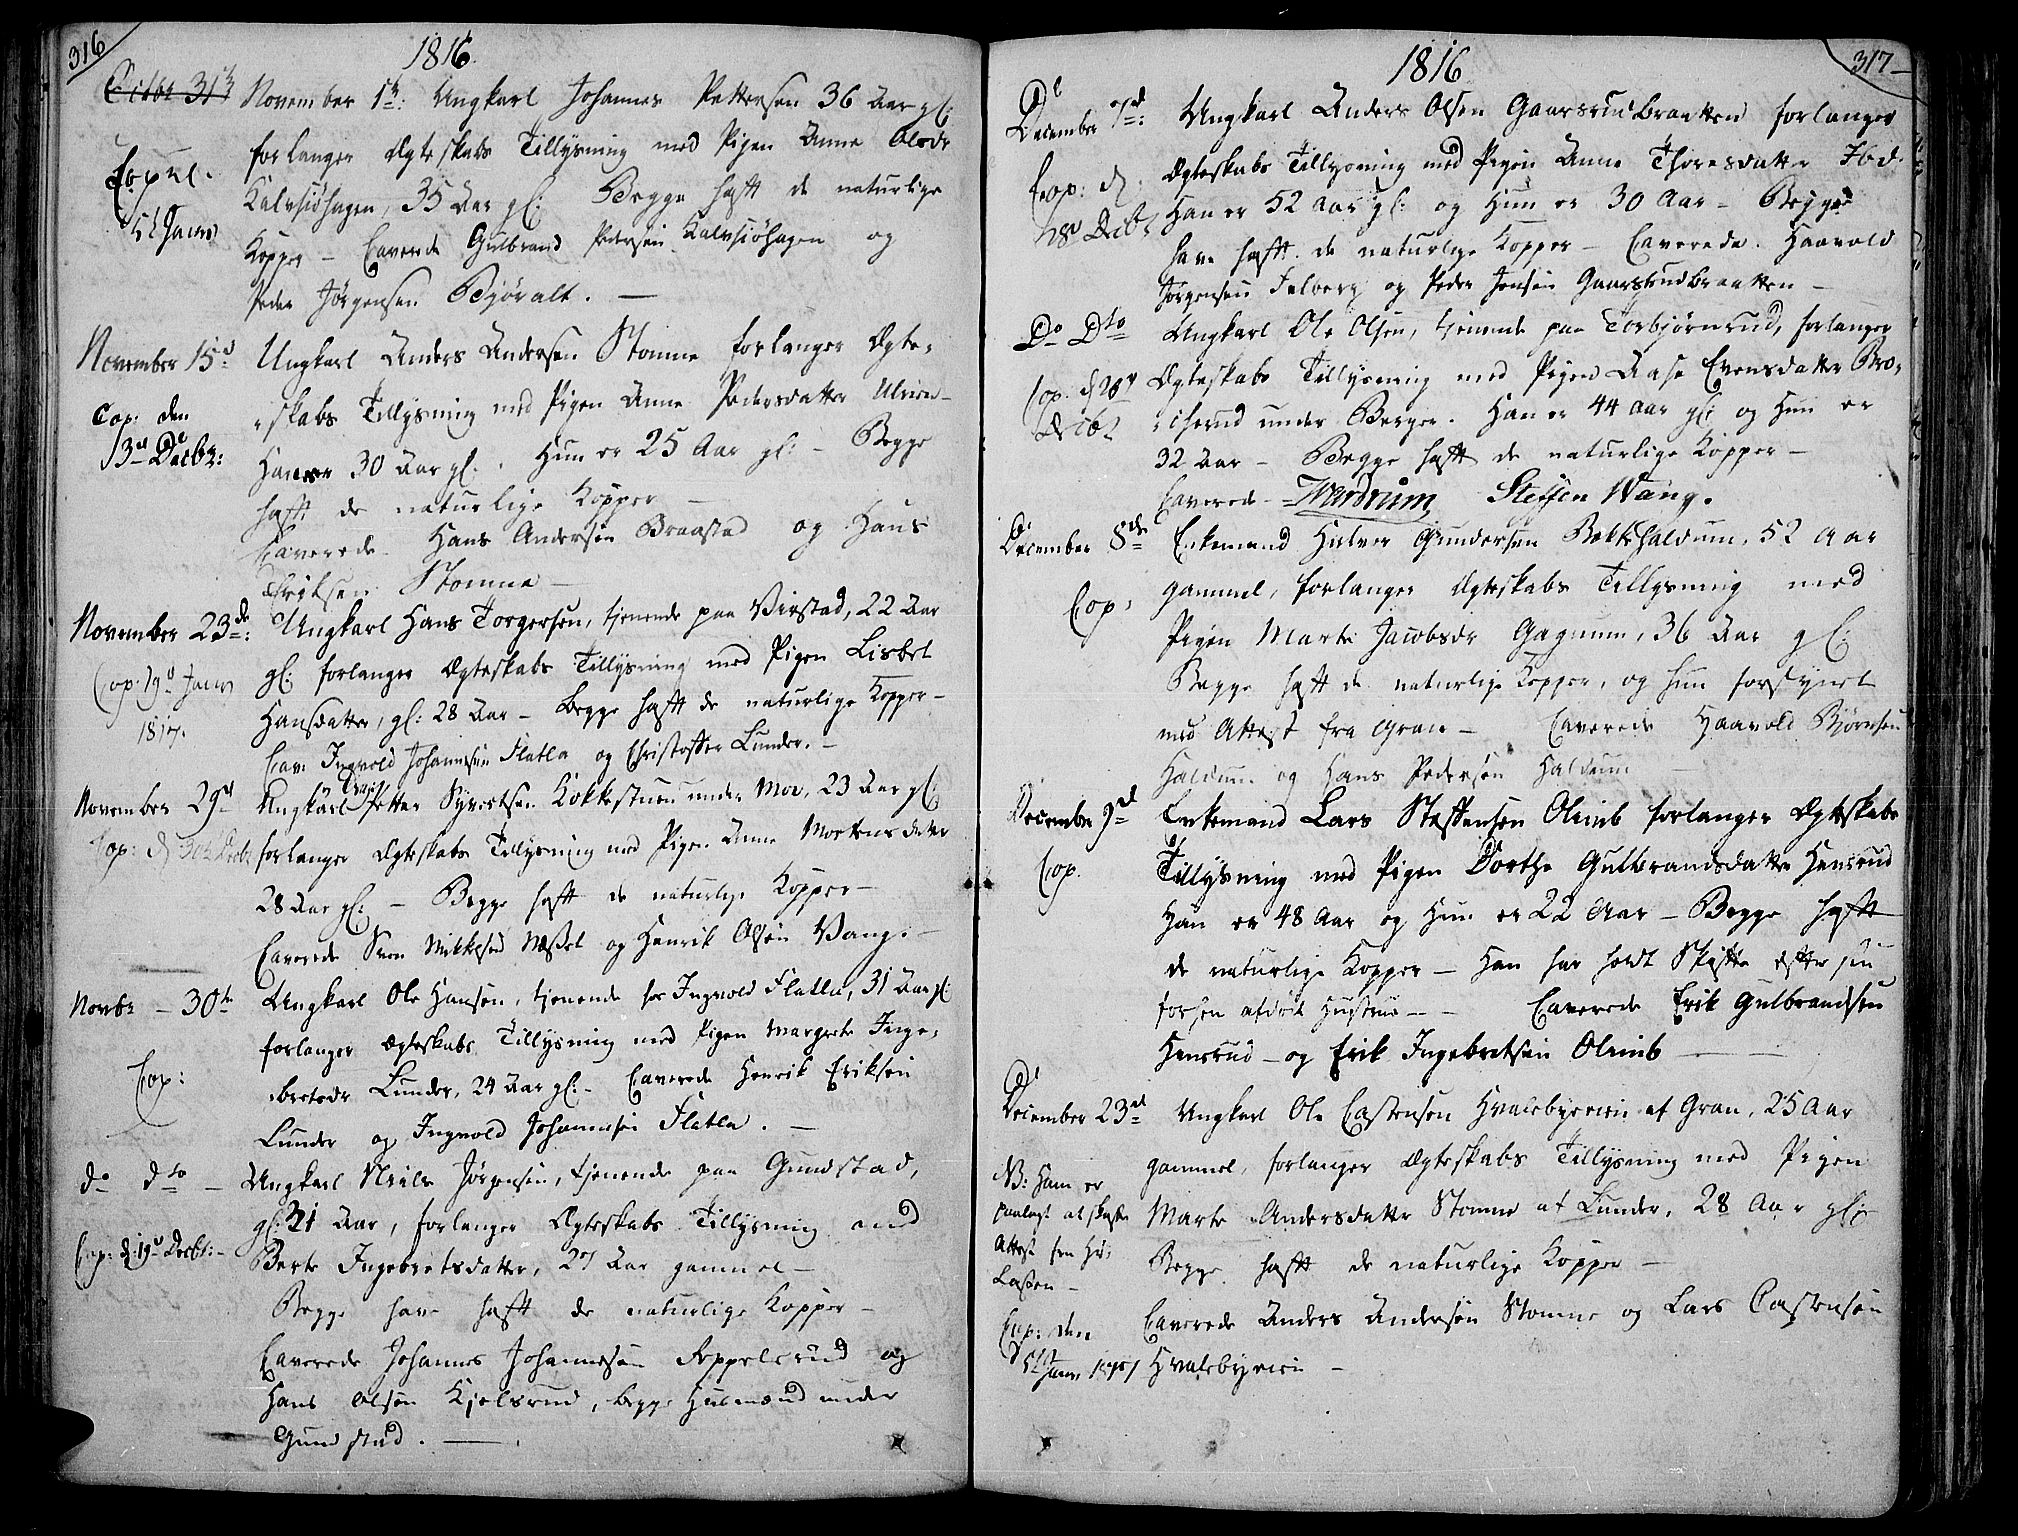 316
1816.
Octbr 31te November 1te: Ungkarl Johannes Pettersen 36 Aar gl:
forlanger Ægteskabs Tillysning med Pigen Anne Olsdr
Copul.
Kalvsiøhagen, 35 Aar gl: Begge haft de naturlige
5t Janr
Kopper – Caverede Gulbrand Pedersen Kalvsiøhagen og
Peder Jørgensen Bjøralt. –
November 15d Ungkarl Anders Andersen Stomne forlanger Ægte-
skabs Tillysning med Pigen Anne Pedersdatter
Cop: den
13d Decbr:
Han er 30 Aar gl. Hun er 25 Aar gl: – Begge
haft de naturlige Kopper –
Caverede Hans Andersen Braastad og Hans
Eriksen Stomne –
November 23de: Ungkarl Hans Torgersen, tjenende paa Virstad, 22 Aar
gl: forlanger Ægteskabs Tillysning med Pigen Lisbet
Cop: 19d Janr
1817.
Hansdatter, gl: 28 Aar – Begge haft de naturlige Kopper –
Cav: Ingvold Johannesen Flatla og Christoffer Lunder. –
November 29d Ungkarl Petter Syvertsen Kokkestuen under Moe, 23 Aar gl:
Cop: d 30te Decbr forlanger Ægteskabs Tillysning med Pigen Anne Mortensdatter
28 Aar gl: – Begge haft de naturlige Kopper –
Caverede Sven Mikkelsen Næssel og Henrik Olsen Vang. –
Novbr – 30te Ungkarl Ole Hansen, tjenende hos Ingvold Flatla, 31 Aar gl:
forlanger Ægteskabs Tillysning med Pigen Margrete Inge-
Cop:
bretsdr Lunder, 24 Aar gl: – Caverede Henrik Eriksen
Lunder og Ingvold Johannesen Flatla. –
do dto – Ungkarl Niels Jørgensen, tjenende paa Gundstad,
gl: 31 Aar, forlanger Ægteskabs Tillysning med
Cop: d: 19d Decbr: –
Berte Ingebretsdatter, 27 Aar gammel –
Begge have haft de naturlige Kopper –
Caverede Johannes Johannesen Keppelsrud og
Hans Olsen Kjelsrud, begge Huusmænd under
Gundstad. –
317
1816
December 7d: Ungkarl Anders Olsen Gaarsrudbraatten forlanger
Ægteskabs Tillysning med Pigen Anne Thoresdatter Ibd.
Cop: d:
28d Decbr
Han er 52 Aar gl: og Hun er 30 Aar – Begge
have haft de naturlige Kopper – Caverede Haavold
Jørgensen Falberg og Peder Jensen Gaarsrudbraatten –
Do Dto Ungkarl Ole Olsen, tjenende paa Torbjørnrud, forlanger
Cop. d 28d
Decbr
Ægteskabs Tillysning med Pigen Aase Evensdatter Bro-
cherud under Berger. Han er 44 Aar gl: og Hun er
32 Aar – Begge haft de naturlige Kopper –
Caverede – Wardrum Steffen Wang.
December 8de Enkemand Halvor Gundersen Bækkehaldum, 52 Aar
gammel, forlanger Ægteskabs Tillysning med
Cop:
Pigen Marte Jacobsdr Gagnum, 36 Aar gl:
Begge haft de naturlige Kopper, og hun forsynet
med Attest fra Gran – Caverede Haavold Bjørnsen
Haldum og Hans Pedersen Haldum –
December 9d Enkemand Lars Steffensen Olimb forlanger Ægteskabs
Cop.
Tillysning med Pigen Dorthe Gulbrandsdatter Hensrud
Han er 48 Aar og Hun er 22 Aar – Begge haft
de naturlige Kopper – Han har holdt Skifte efter sin
forhen afdøde Hustrue – Caverede Erik Gulbrandsen
Hensrud – og Erik Ingebretsen Olimb –
December 23d Ungkarl Ole Castensen Hvalebyeeien af Gran, 25 Aar
gammel, forlanger Ægteskabs Tillysning med Pigen
NB: Ham er
paalagt at skaffe
Attest fra Hr:
Lassen –
Marte Andersdatter Stomne af Lunder, 28 Aar gl:
Begge haft de naturlige Kopper –
Cop: den
5te Janr 1817
Caverede Anders Andersen Stomne og Lars Castensen
Hvalebyeeien –